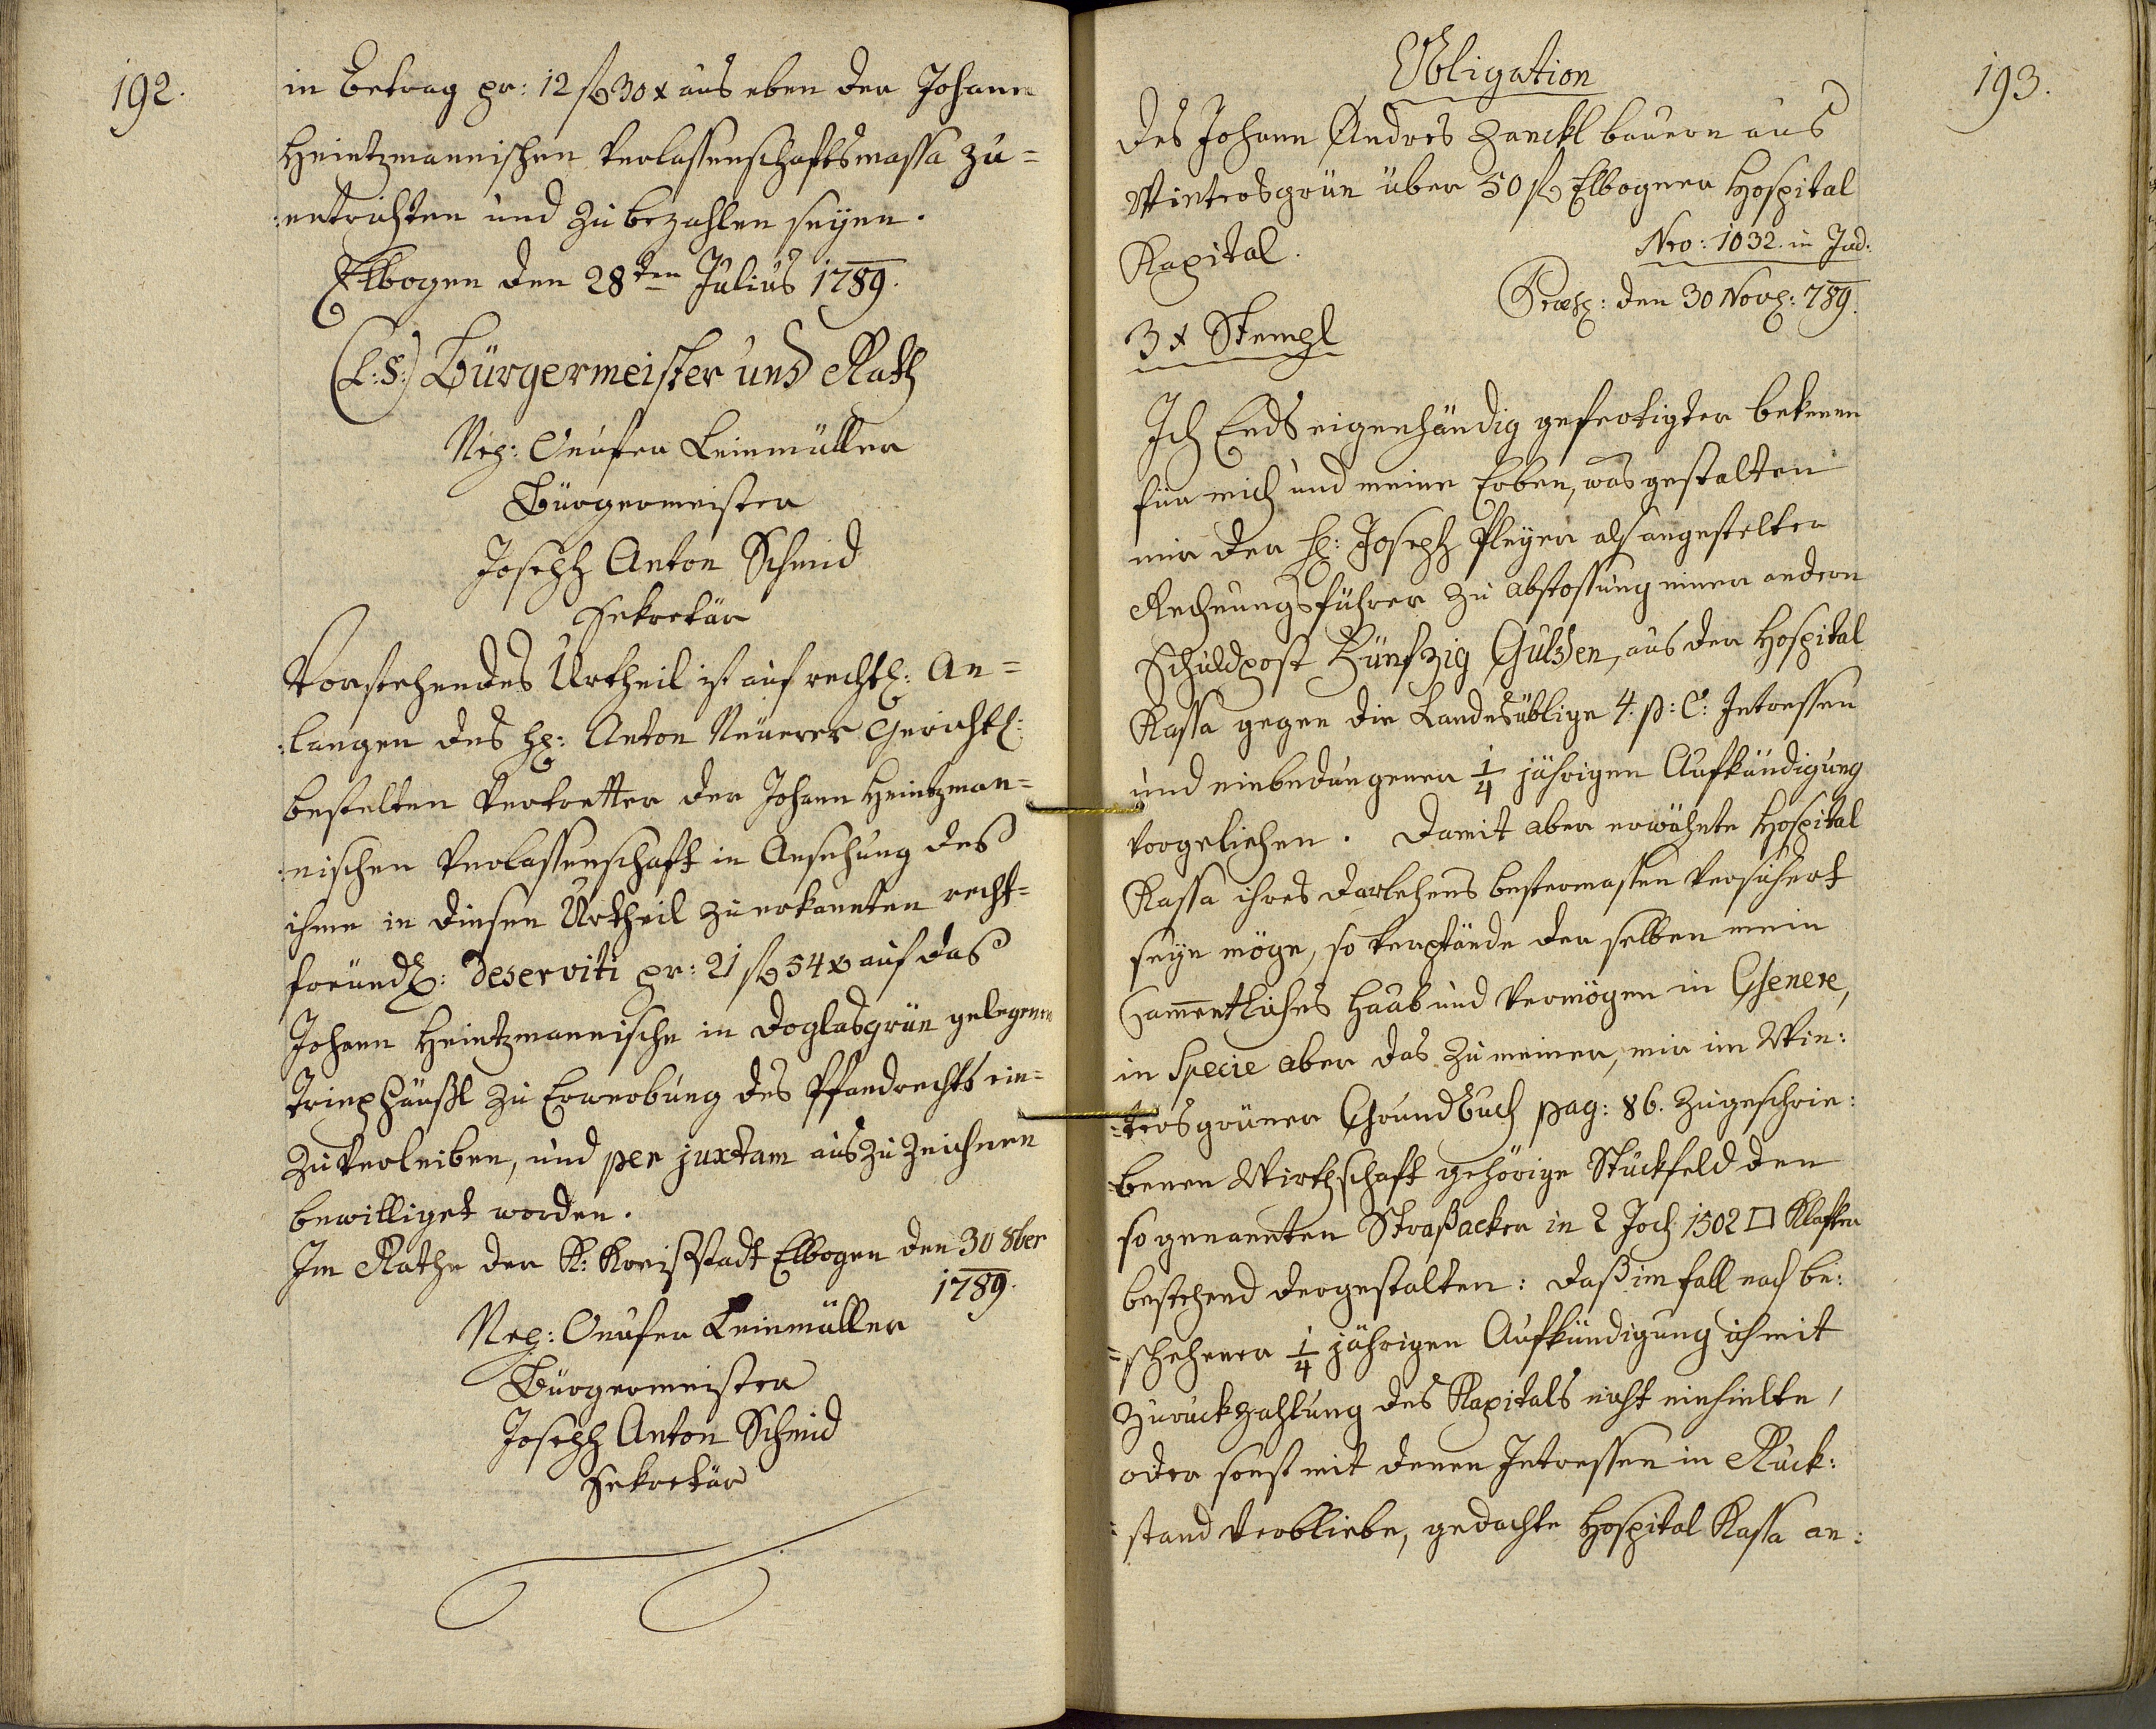 192.
in Betrag pr: 12 fl 30 x aus eben der Johann
Heintzmannischen Verlassenschaftsmassa zu=
:entrichten und zu bezahlen seyen.
Elbogen den 28ten Julius 1789.
(L:S:) Bürgermeister und Rath
Nep: Onufer Leinmüller
Bürgermeister
Joseph Anton Schmid
Sekretär
Vorstehendes Urtheil ist auf rechtl: An=
:langen des H: Anton Neuerer Gerichtl:
bestelten Vertretter der Johann Heintzman=
:nischen Verlassenschaft in Ansehung des
ihme in diesen Urtheil zuerkannten recht=
freundl: Deserviti pr: 21 fl 54 x auf das
Johann Heintzmannische in Doglasgrün gelegene
Tripfhäußl zu Erwerbung des Pfandrechts ein=
zuverleiben, und per juxtam auszuzeichnen
bewilliget worden.
Im Rathe der K: Kreisstadt Elbogen den 30 8ber
1789.
Nep: Onufer Leinmüller
Bürgermeister
Joseph Anton Schmid
Sekretär
193.
Obligation
des Johann Andres Zanckl bauern aus
Wintersgrün über 50 fl Elbogner Hospital
Kapital.
Nro: 1032. in Jud:
Præs: den 30 Nov: 789.
3 x Stempl
Ich Ends eigenhändig gefertigter bekenne
für mich und meine Erben, was gestalten
mir der H: Joseph Pleyer als angestelter
Rechnungsführer zu abstossung einer andern
Schuldpost Fünfzig Gulden, aus der Hospital
Kassa gegen die Landesüblige 4. p: C: Intressen
und einbedungener 1/4 jährigen Aufkündigung
vorgeliehen. Damit aber erwähnte Hospital
Kassa ihres Darlehens bestermassen versichert
seyn möge, so verpfände der selben mein
Sammentliches Haab und Vermögen in Genere,
in Specie aber das zu meiner, mir im Win:
:tersgrüner Grundbuch pag: 86. zugeschrie:
=benen Wirthschaft gehörige Stückfeld den
so genannten Straßacker in 2 Joch 1502 □ Klafter
bestehend dergestalten: daß im fall nach be:
=schehener 1/4 jährigen Aufkündigung ich mit
Zuruckzahlung des Kapitals nicht einhielte,
oder sonst mit denen Intressen in Ruck:
=stand verbliebe, gedachte Hospital Kassa an: